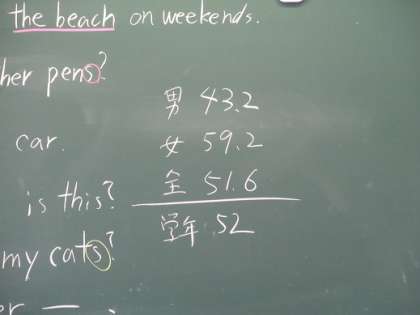 the beach on weekends.
her pens?
car.
is this?
my cats?
男 43.2
女 59.2
全 51.6
学年 52